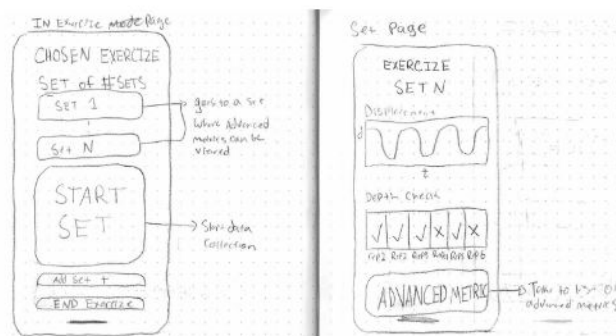 IN Exercize Mode Page
CHOSEN EXERCIZE
SET of #SETS
SET 1
Set N
goes to a set
Where Advanced
metrics can be
viewed
START
SET
Start data
Collection
Add Set +
END Exercize
Set Page
EXERCIZE
SET N
Displacement
d
t
Depth Check
✓ ✓ ✓ X ✓ X
Rep1 Rep2 Rep3 Rep4 Rep5 Rep6
ADVANCED METRIC
to list of
advanced metrics